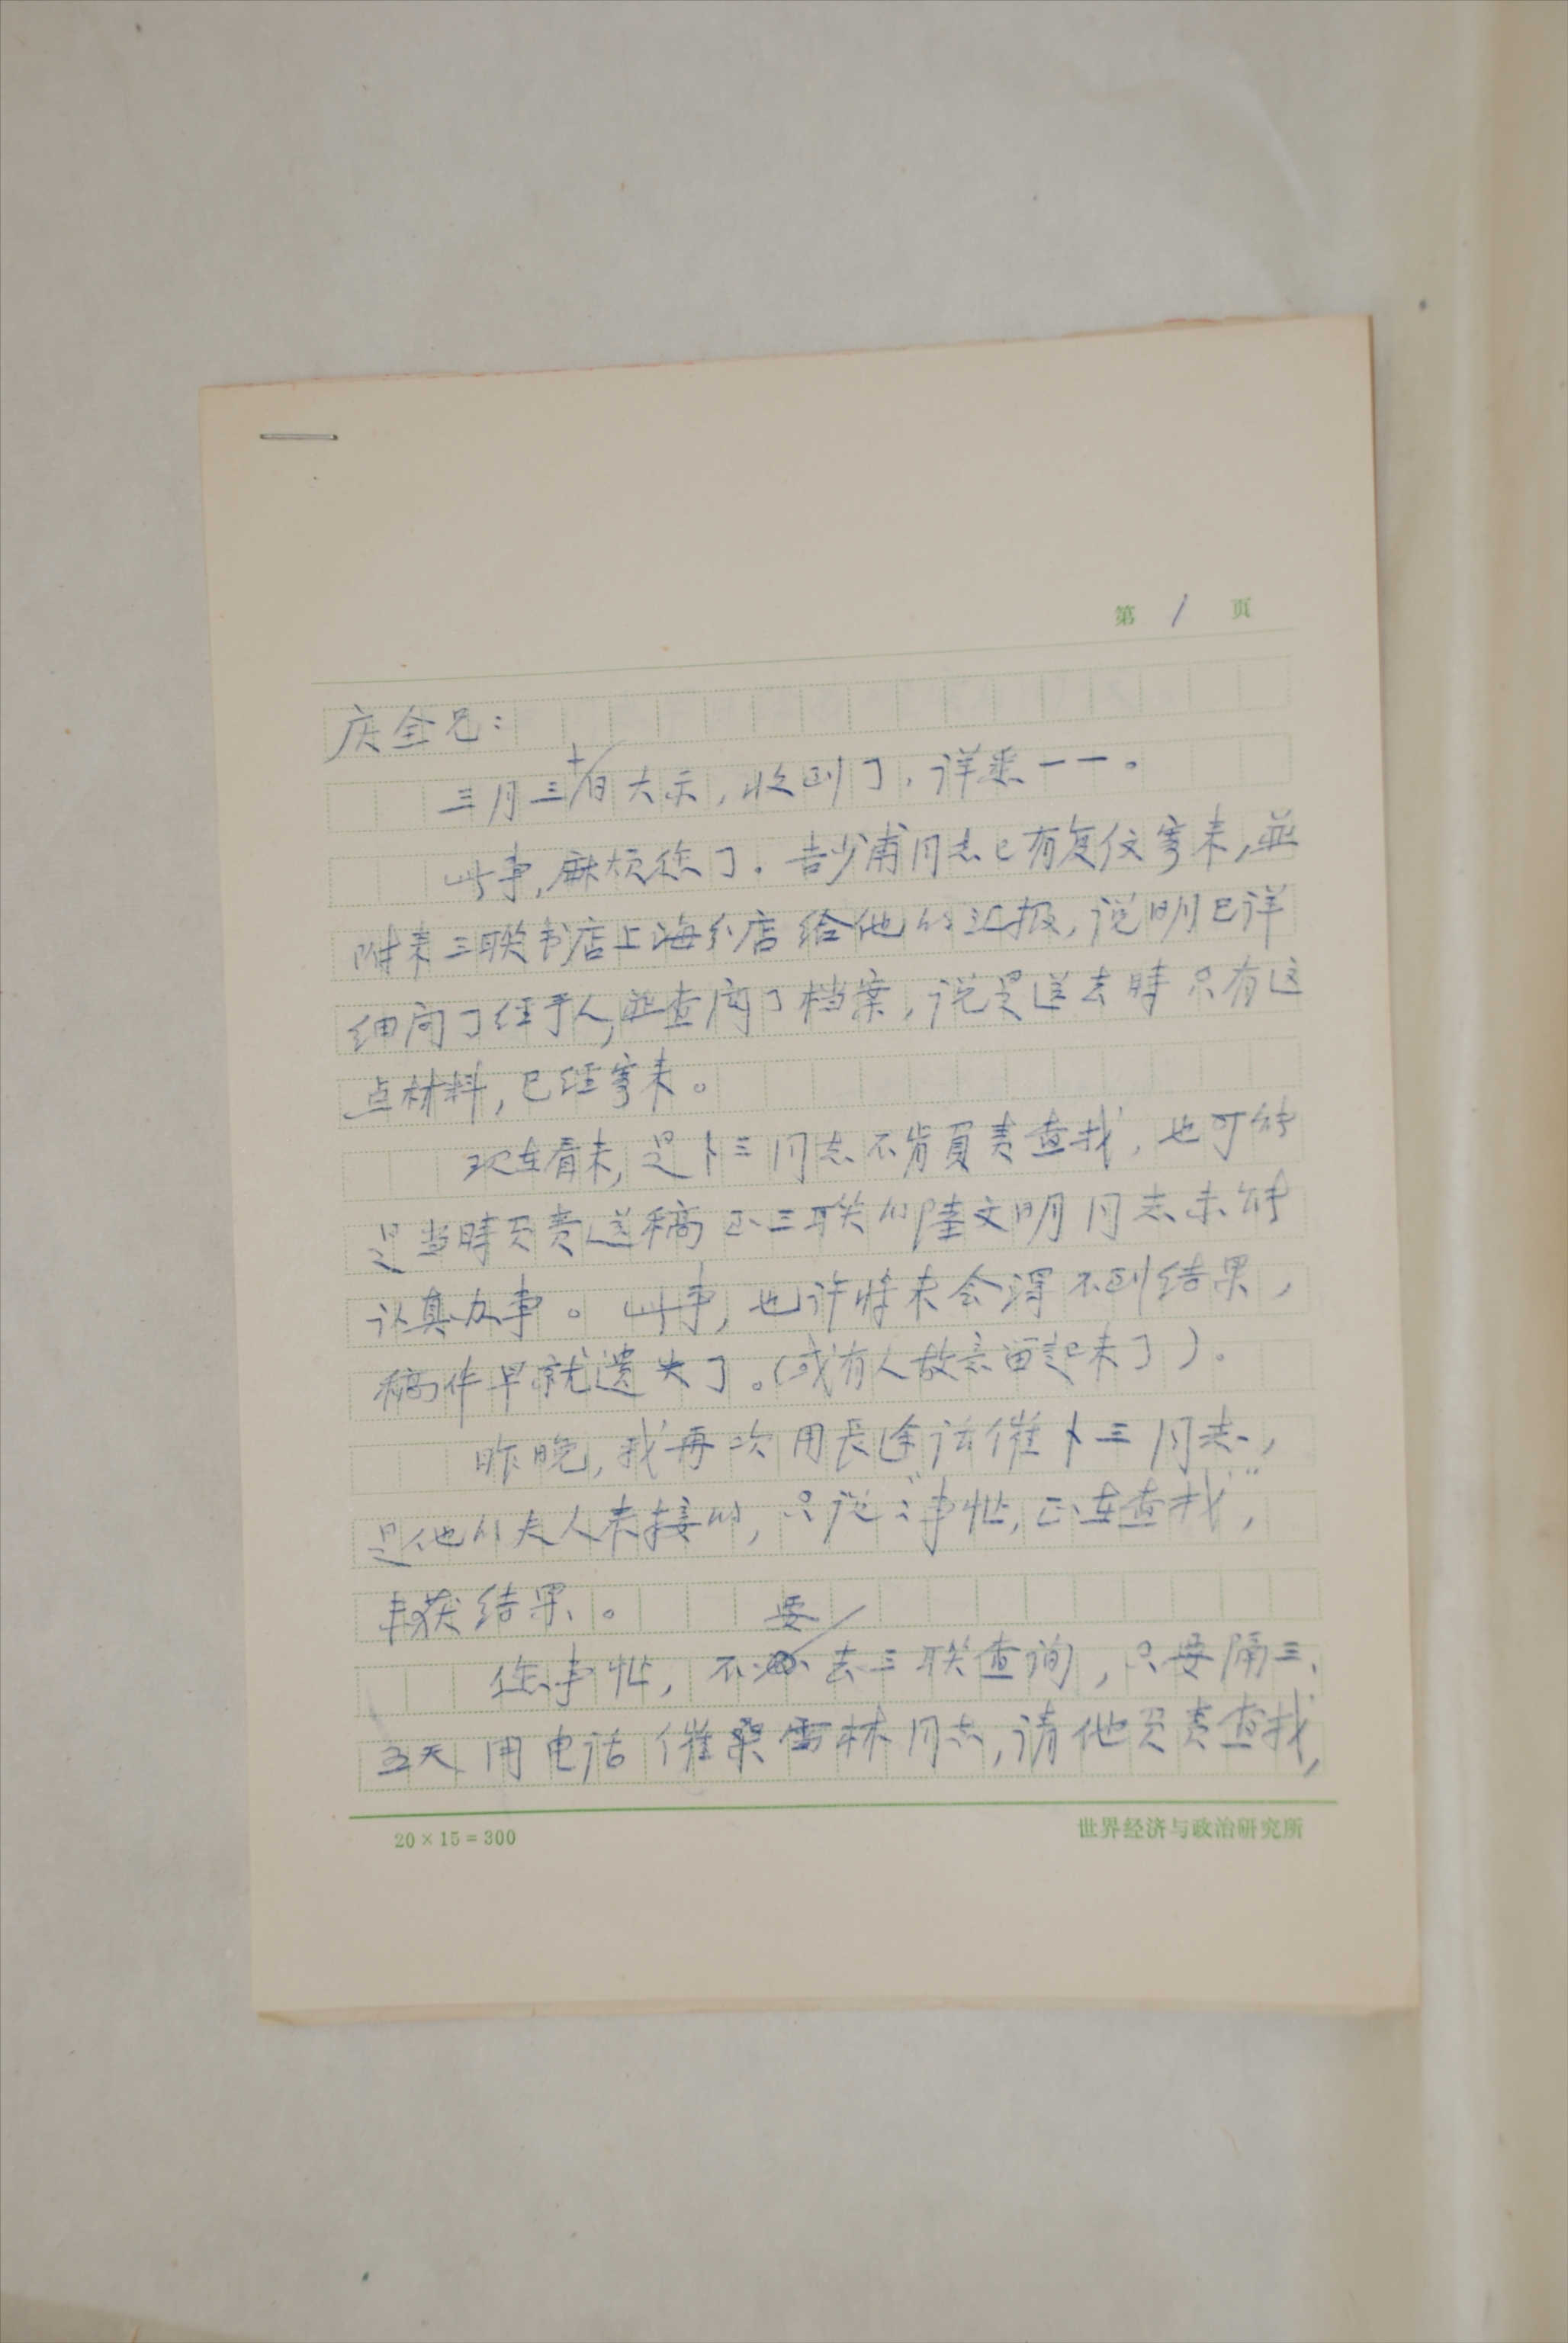 第 1 页
庆全兄：
三月三十日大示，收到了，详悉一一。
此事，麻烦您了。吉少甫同志已有复仪寄来，並
附来三联书店上海分店给他的汇报，说明已详
细问了经手人，並查阅了档案，说是送去時只有这
点材料，已经寄来。
现在看来，是卜三同志不肯負责查找，也可能
是当時负责送稿至三联的陸文明同志未能
认真办事。此事，也许将来会得不到结果，
稿件早就遗失了。（或有人故意留起来了）。
昨晚，我再次用长途话催卜三同志，
是他的夫人来接的，只说："事忙，正在查找"，
未获结果。
您事忙，不要去三联查询，只要隔三、
五天用电话催桑雷林同志，请他负责查找，
20×15=300
世界经济与政治研究所